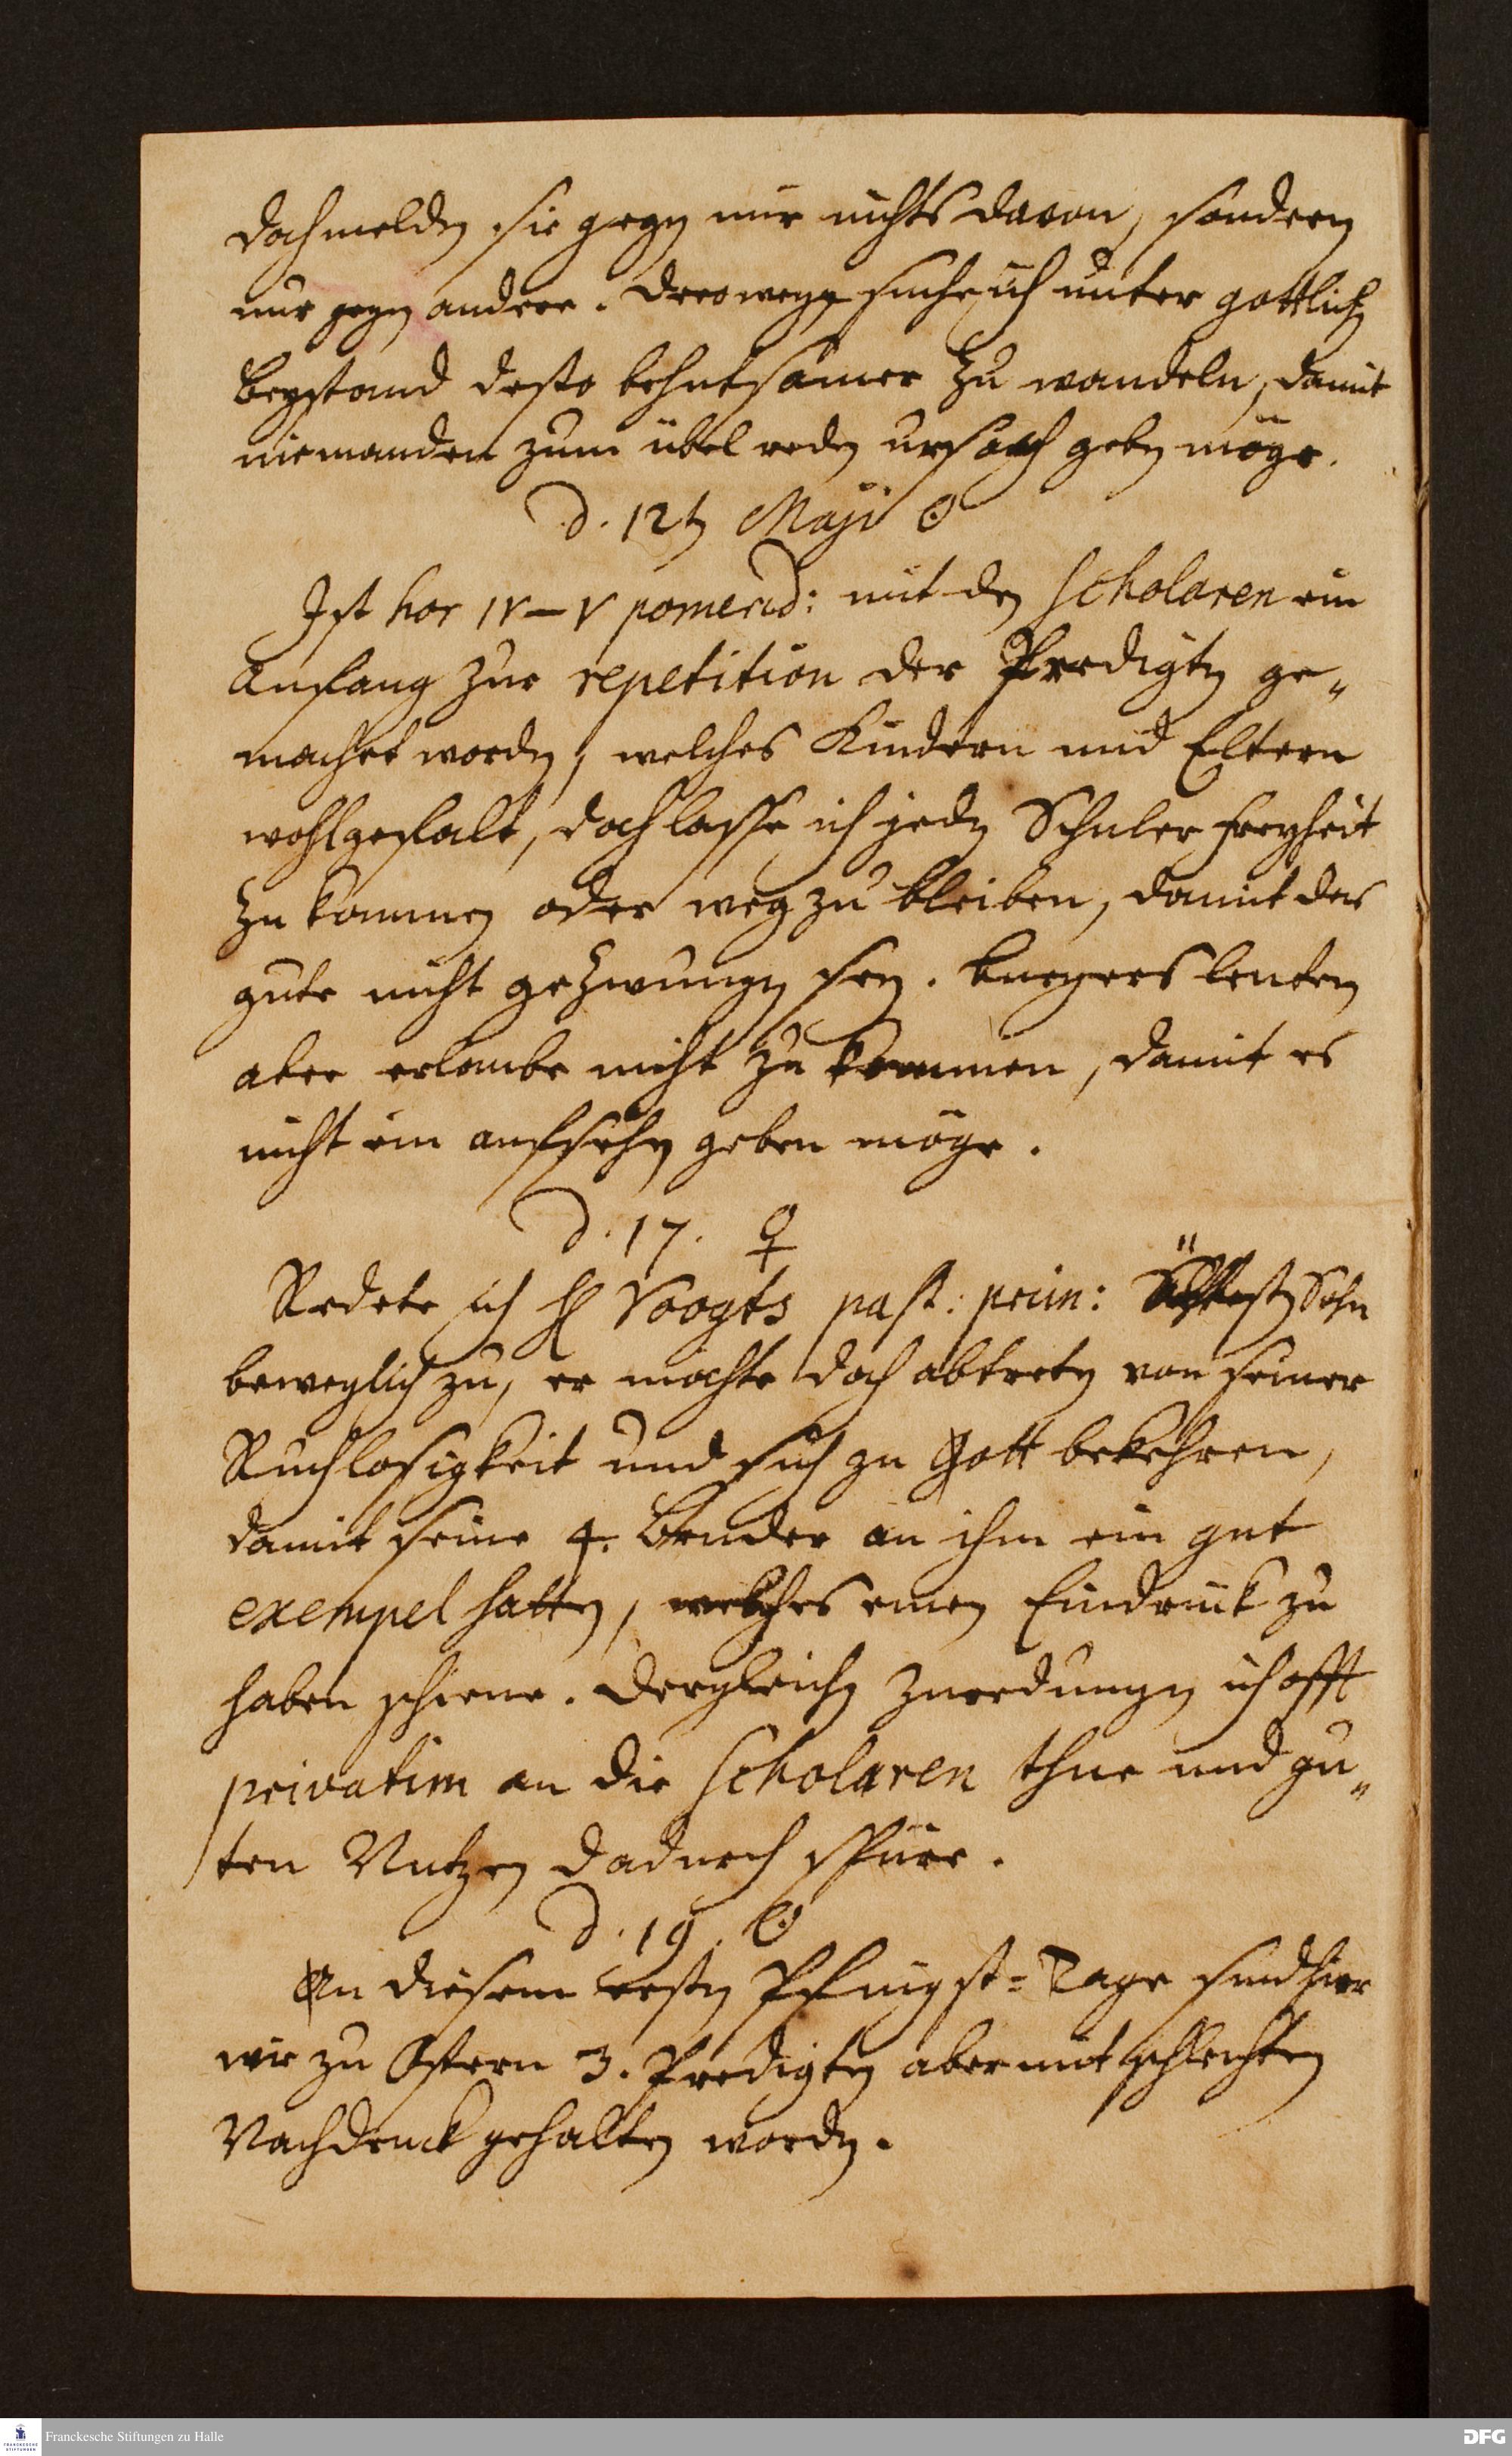 doch melden sie gegen mir nichts davon, sondern
nur gegen andere. Deroweg suche ich unter gottlich
beystand desto behutsamer zu wandeln, damit
niemanden zum übel reden ursach geben möge.
d. 12t Maji ☉
Ist hor IV–V pomerid: mit den Scholaren ein
Anfang zur repetition der Predigten ge„
machet worden, welches Kindern und Eltern
wohlgefalt, doch lasse ich jeden Schuler freyheit
zu kommen oder weg zu bleiben, damit das
gute nicht gezwungen sey. buergers leuten
aber erlaube nicht zu kommen, damit es
nicht ein aufsehen geben möge.
d. 17. ♀
Redete ich H Voogts past: prim: Sohn
beweglich zu, er möchte doch abtreten von seiner
Ruchlosigkeit und sich zu Gott bekehren,
damit seine 4. Bruder an ihm ein gut
exempel hatten, welches einen Eindruck zu
haben schiene. dergleichen zuredungen ich offt
privatim an die Scholaren thue und gu„
ten Nutzen dadurch spüre.
d. 19. ☉
An diesem ersten Pfingst=Tage sind hier
wie zu Ostern 3. Predigten aber mit schlechten
Nachdruck gehalten worden.
Franckesche Stiftungen zu Halle
DFG